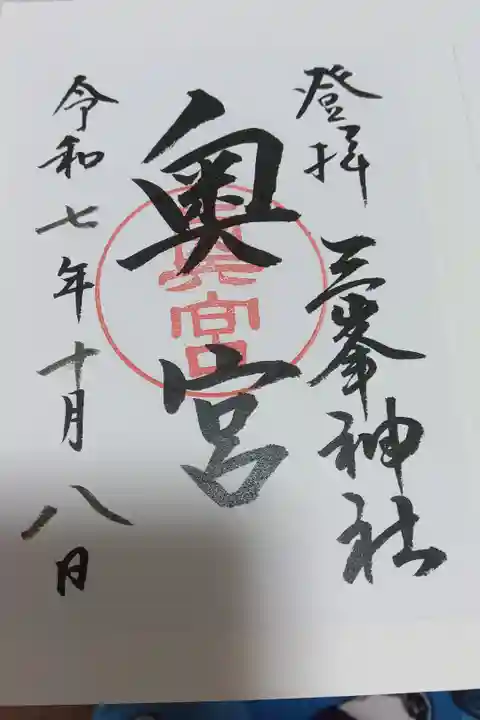 登拝
三峯神社
奥宮
奥宮
令和七年十月八日